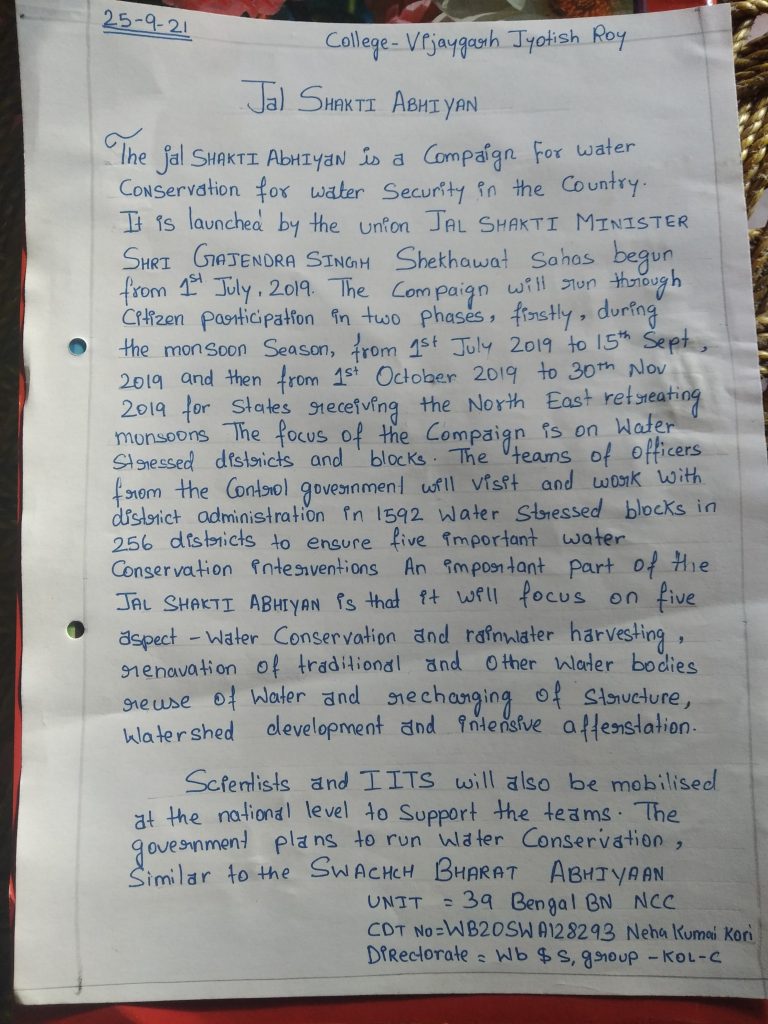 25-9-21
College- Vijaygarh Jyotish Roy
Jal SHAKTI ABHIYAN
The jal SHAKTI AbHIYaN is a Compaign For water
Conservation for water Security in the Country.
It is launched by the union JAL SHAKTI MINISTER
SHRI GAJENDRA SINGH Shekhawat Sahas begun
from 1st July, 2019. The Compaign will run through
Citizen participation in two phases, firstly, during
the monsoon Season, from 1st July 2019 to 15th Sept,
2019 and then from 1st October 2019 to 30th Nov
2019 for States receiving the North East retreating
monsoons The focus of the Compaign is on Water
Stressed districts and blocks. The teams of officers
from the Control government will visit and work with
district administration in 1592 Water Stressed blocks in
256 districts to ensure five important water
Conservation interventions An important part of the
JAL SHAKTI ABHIYAN is that it will focus on five
aspect - Water Conservation and rainwater harvesting,
renavation of traditional and Other Water bodies
reuse of Water and recharging of Structure,
Watershed development and intensive afferstation.
Scientists and IITS will also be mobilised
at the national level to Support the teams. The
government plans to run Water Conservation,
Similar to the SWACHCH BHARAT ABHIYAAN
UNIT = 39 Bengal BN NCC
CDT No=WB20SWA128293 Neha Kumai Kori
DiRectorate = Wb $ S, group - KOL-C